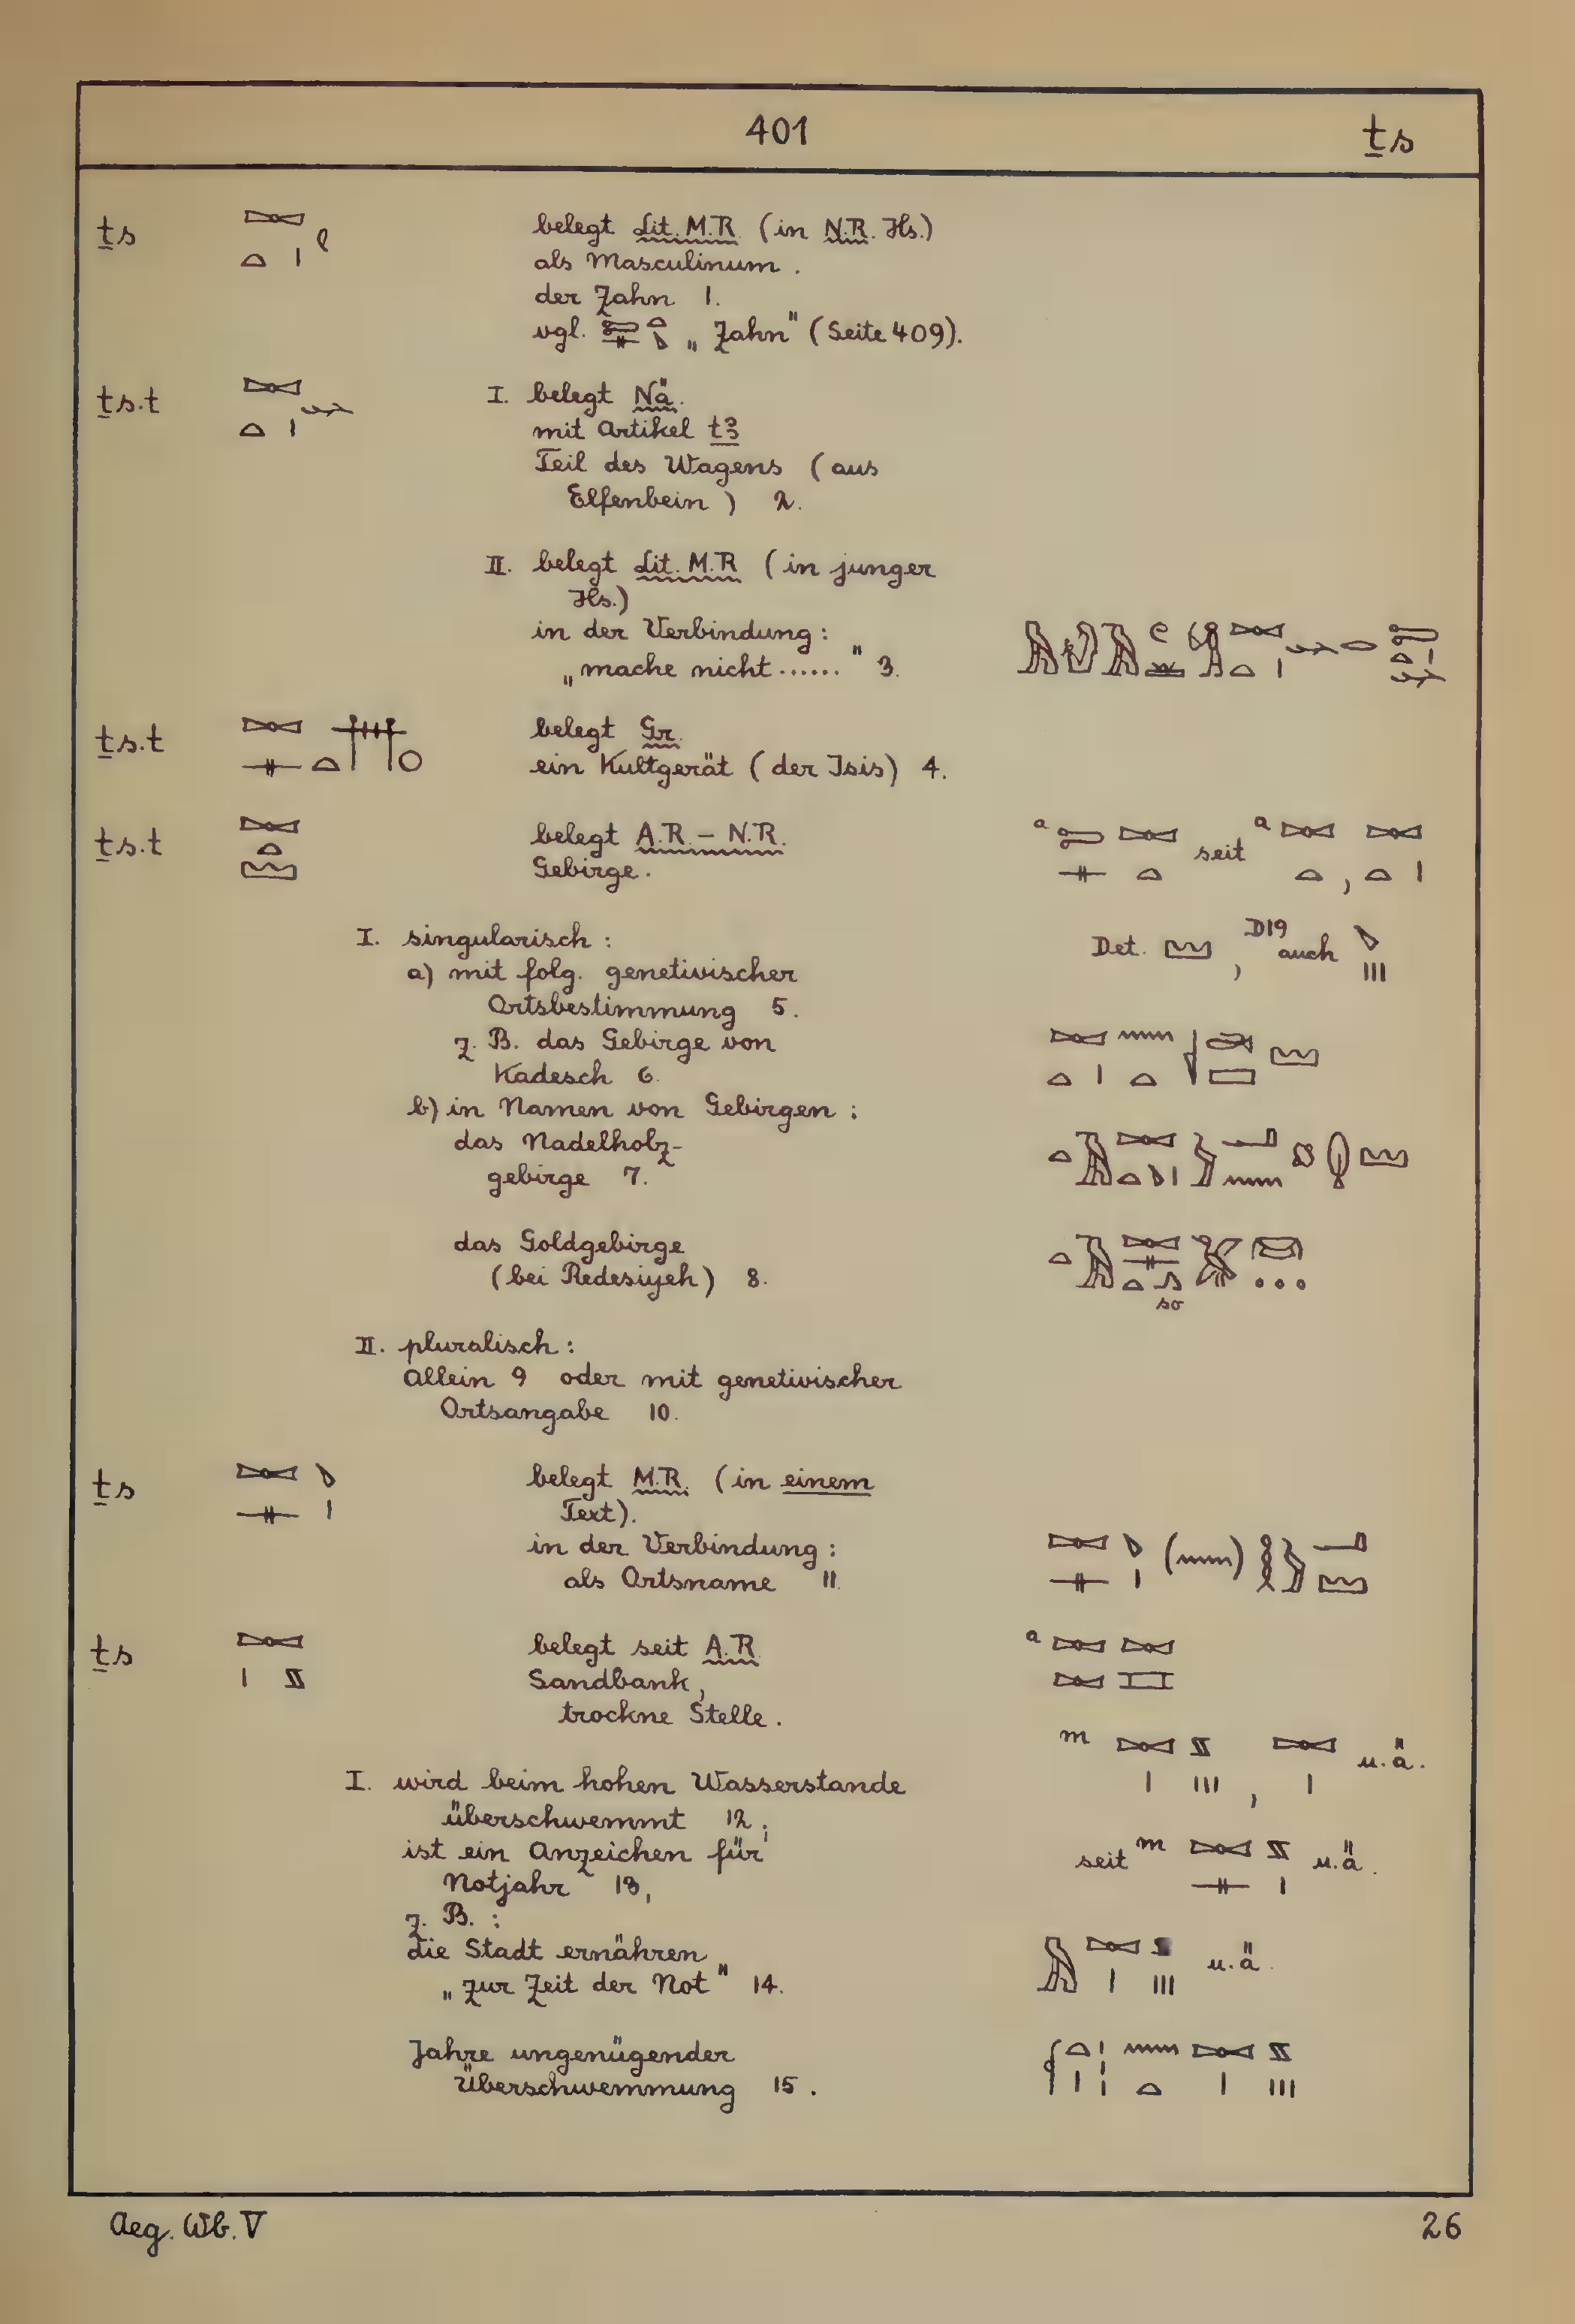 401
ṯs
ṯs
belegt Lit. M.R. (in N.R. Hs.)
als Masculinum.
der Zahn 1.
vgl. „Zahn" (Seite 409).
ṯs.t
I. belegt Nä.
mit Artikel tꜣ
Teil des Wagens (aus
Elfenbein) 2.
II. belegt Lit. M.R (in junger
Hs.)
in der Verbindung:
„mache nicht......" 3.
ṯs.t
belegt Gr.
ein Kultgerät (der Isis) 4.
ṯs.t
belegt A.R. – N.R.
Gebirge.
a seit a ,
I. singularisch:
Det. , D19 auch
a) mit folg. genetivischer
Ortsbestimmung 5.
z. B. das Gebirge von
Kadesch 6.
b) in Namen von Gebirgen:
das Nadelholz-
gebirge 7.
das Goldgebirge
(bei Redesiyeh) 8.
so
II. pluralisch:
Allein 9 oder mit genetivischer
Ortsangabe 10.
ṯs
belegt M.R. (in einem
Text).
in der Verbindung:
als Ortsname 11.
ṯs
belegt seit A.R.
a
Sandbank,
trockne Stelle.
m , u.ä.
I. wird beim hohen Wasserstande
überschwemmt 12;
ist ein Anzeichen für
seit m u.ä.
Notjahr 13,
z. B.:
die Stadt ernähren
u.ä.
„zur Zeit der Not" 14.
Jahre ungenügender
Überschwemmung 15.
Aeg. Wb. V
26